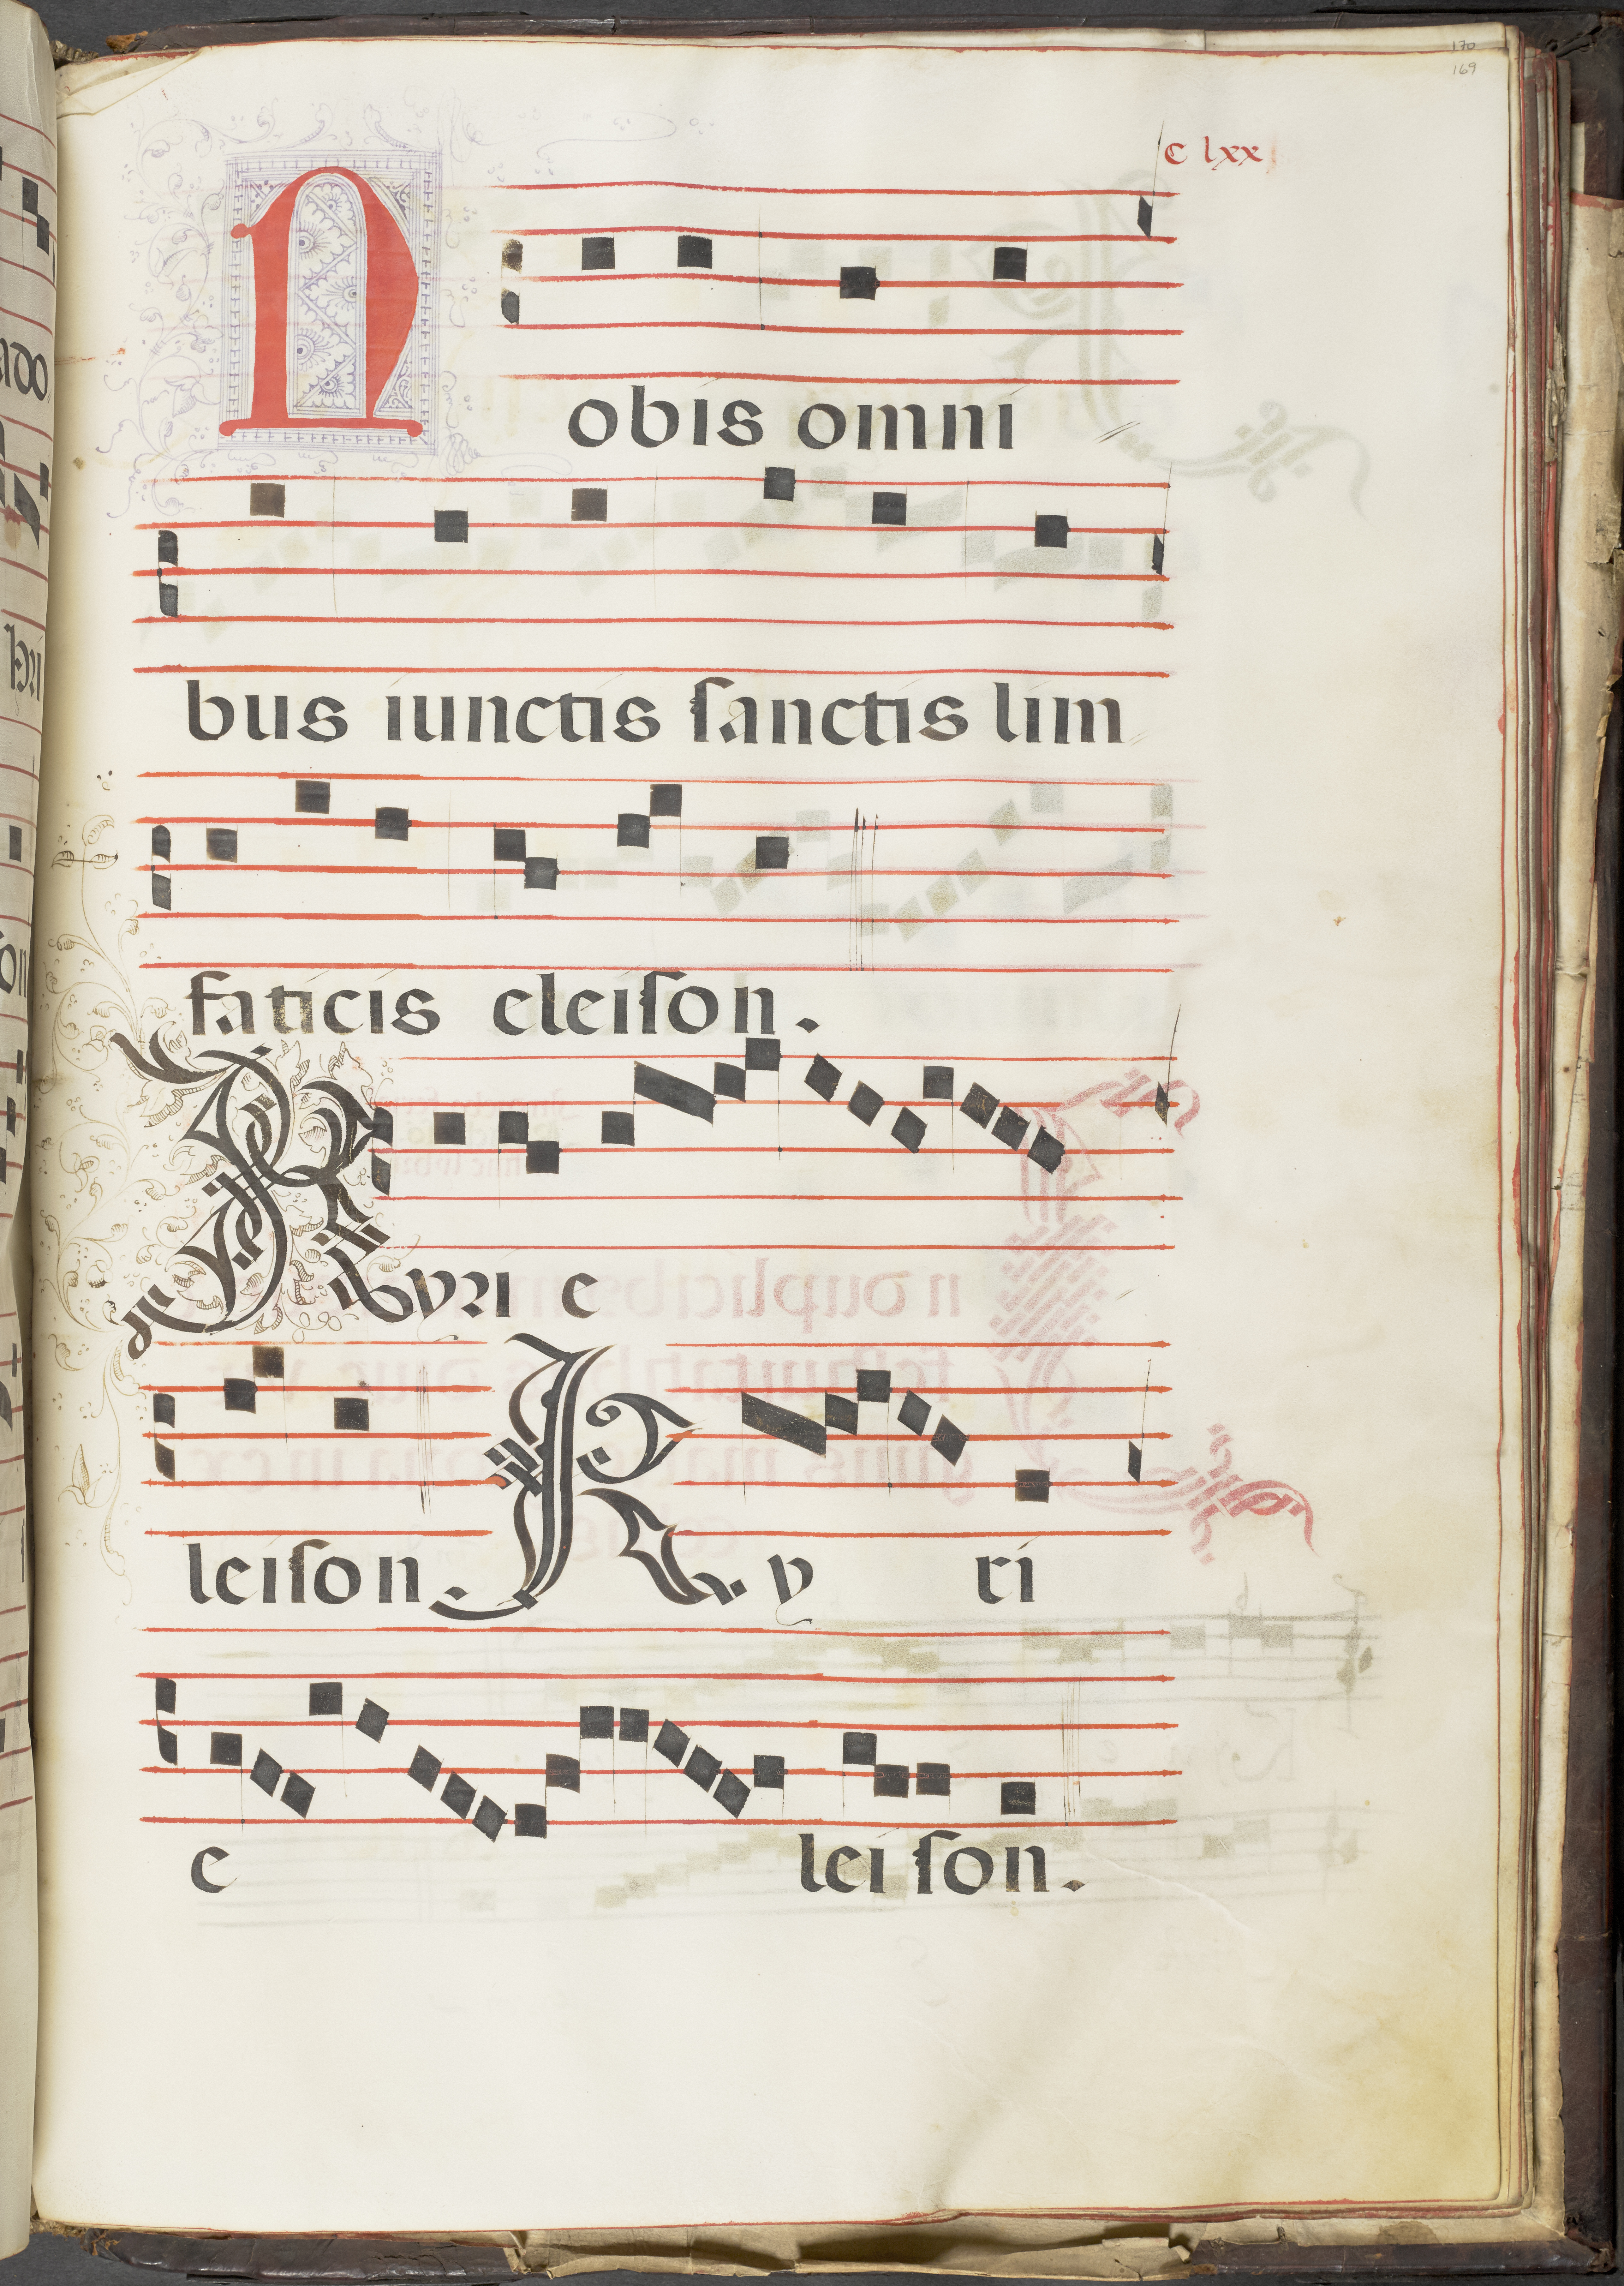 170
169
c lxx
Nobis omni
bus iunctis ſanctis lim
faticis eleiſon.
Kyri e
leiſon. Ky ri
e lei ſon.